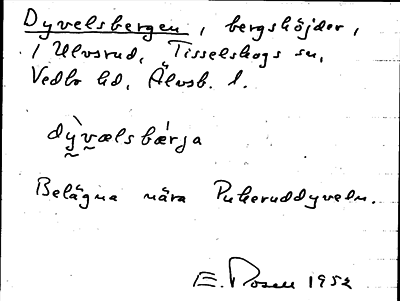 Dyvelsbergen, bergshöjder,
i Ulvsrud, Tisselskogs sn,
Vedbo hd, Älvsb. l.
dỳvælsbærja
Belägna nära Pukeruddyveln.
E. Rosell 1952